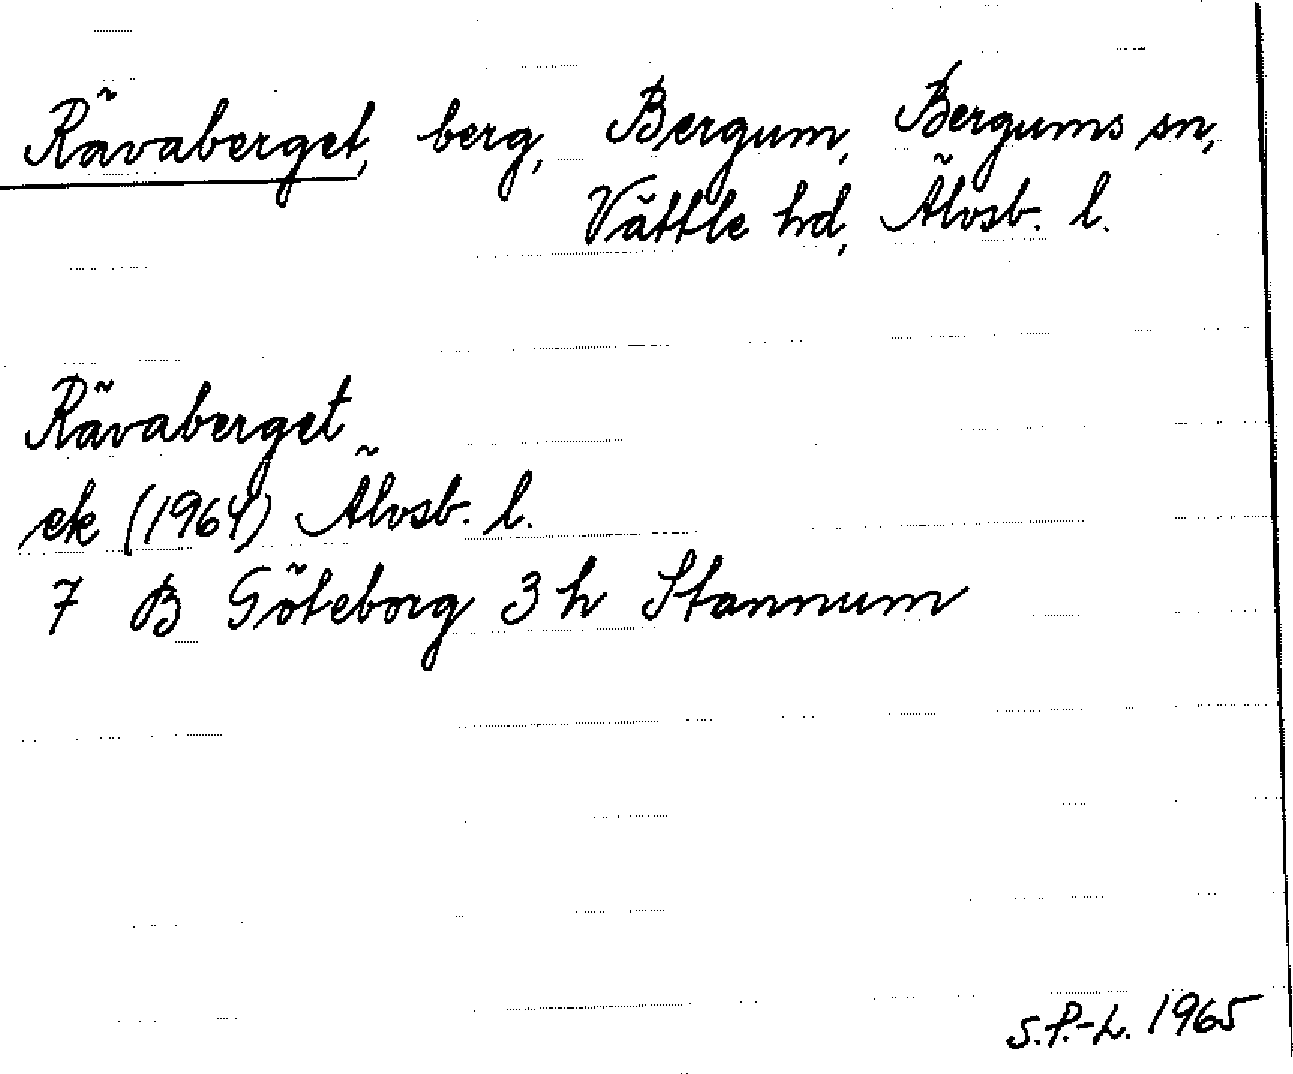 Rävaberget, berg, Bergum, Bergums sn,
Vättle hd, Älvsb. l.
Rävaberget
ek (1964) Älvsb. l.
7 B Göteborg 3 h Stannum
S.P.-L. 1965